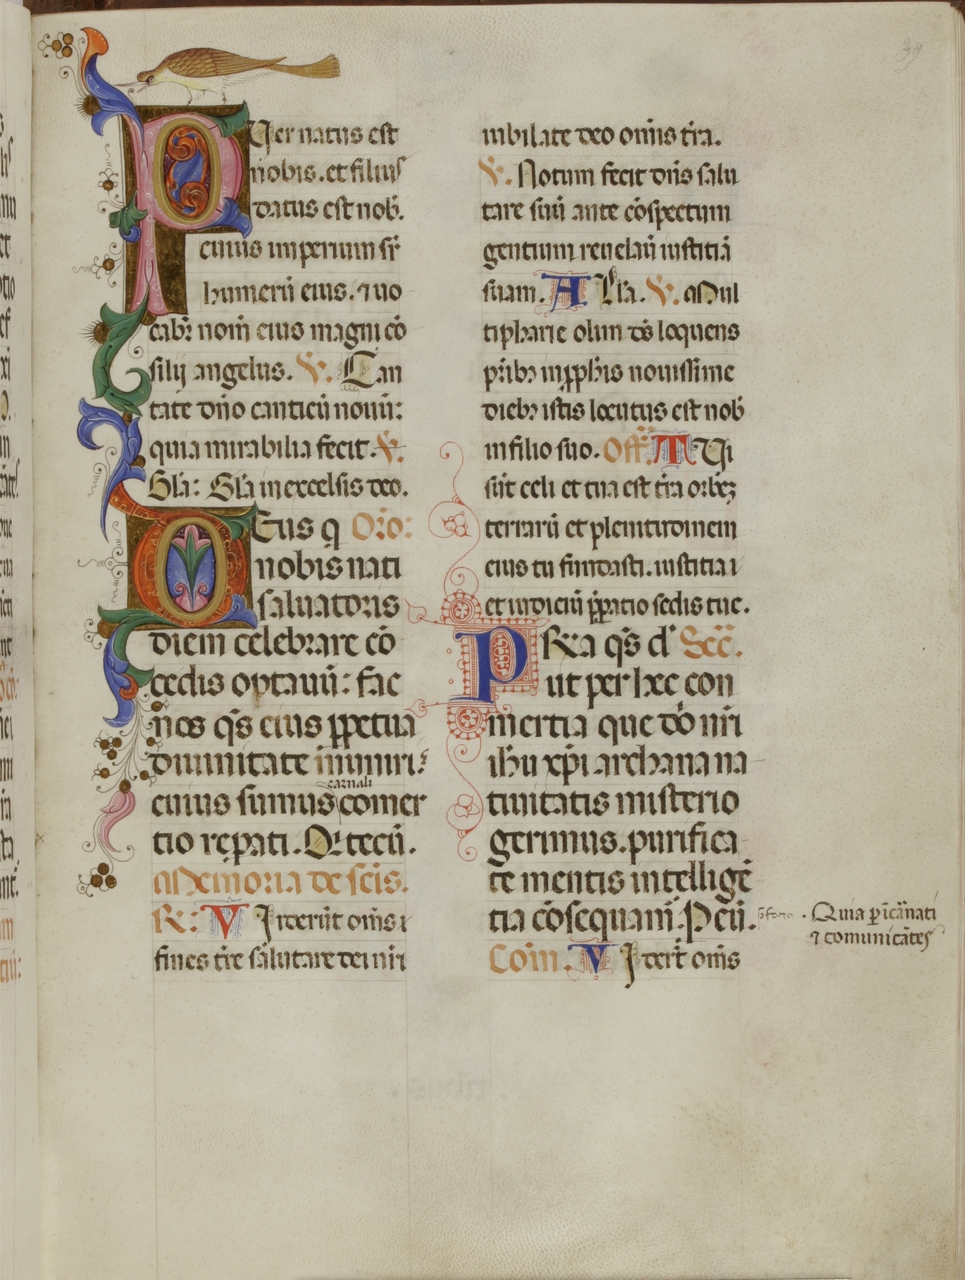 PUer natus est
nobis. et filius
datus est nob̄.
cuius imperium sr̄
humerū eius. ⁊ uo
cabr̄ nom̄ eius magni cō
silij angelus. V̄. Can
tate dn̄o canticū nouū:
quia mirabilia fecit. V̄.
Gl̄a: Gl̄a in excelsis deo.
DEus q Oro:
nobis nati
saluatoris
diem celebrare cō
cedis optauū: fac
nos q̄s eius ꝓpetua
diuinitate muniri:
cuius sumus carnali comer
tio reꝑati. Qr̄ tecū.
Memoria de scīs.
R: VIderūt om̄s ī
fines tr̄e salutare dei nr̄i
iubilate deo om̄is tr̄a.
V̄. Notum fecit dn̄s salu
tare suū ante cōspectum
gentium reuelau̅ iustitiā
suam. All̄a. V̄. Mul
tipharie olim dš loquens
pr̄ibꝫ in ꝓph̄is nouissime
diebꝫ istis locutus est nob̄
in filio suo. Off̄. TUi
sūt celi et tua est tr̄a orbeꝫ
terrarū et plenitudinem
eius tu fundasti. iustitia ⁊
et iudiciū p̄ꝑatio sedis tue.
PR̄a q̄s d̄ Sec̄.
ut per hec con
mertia que dō nr̄i
ihu xp̄i archana na
tiuitatis misterio
gerimus. purifica
te mentis intelligē
tia cōsequam̄. P eū.
Quia ꝑ īcānati
⁊ comunicātes
Com̄. VIder̄t om̄s